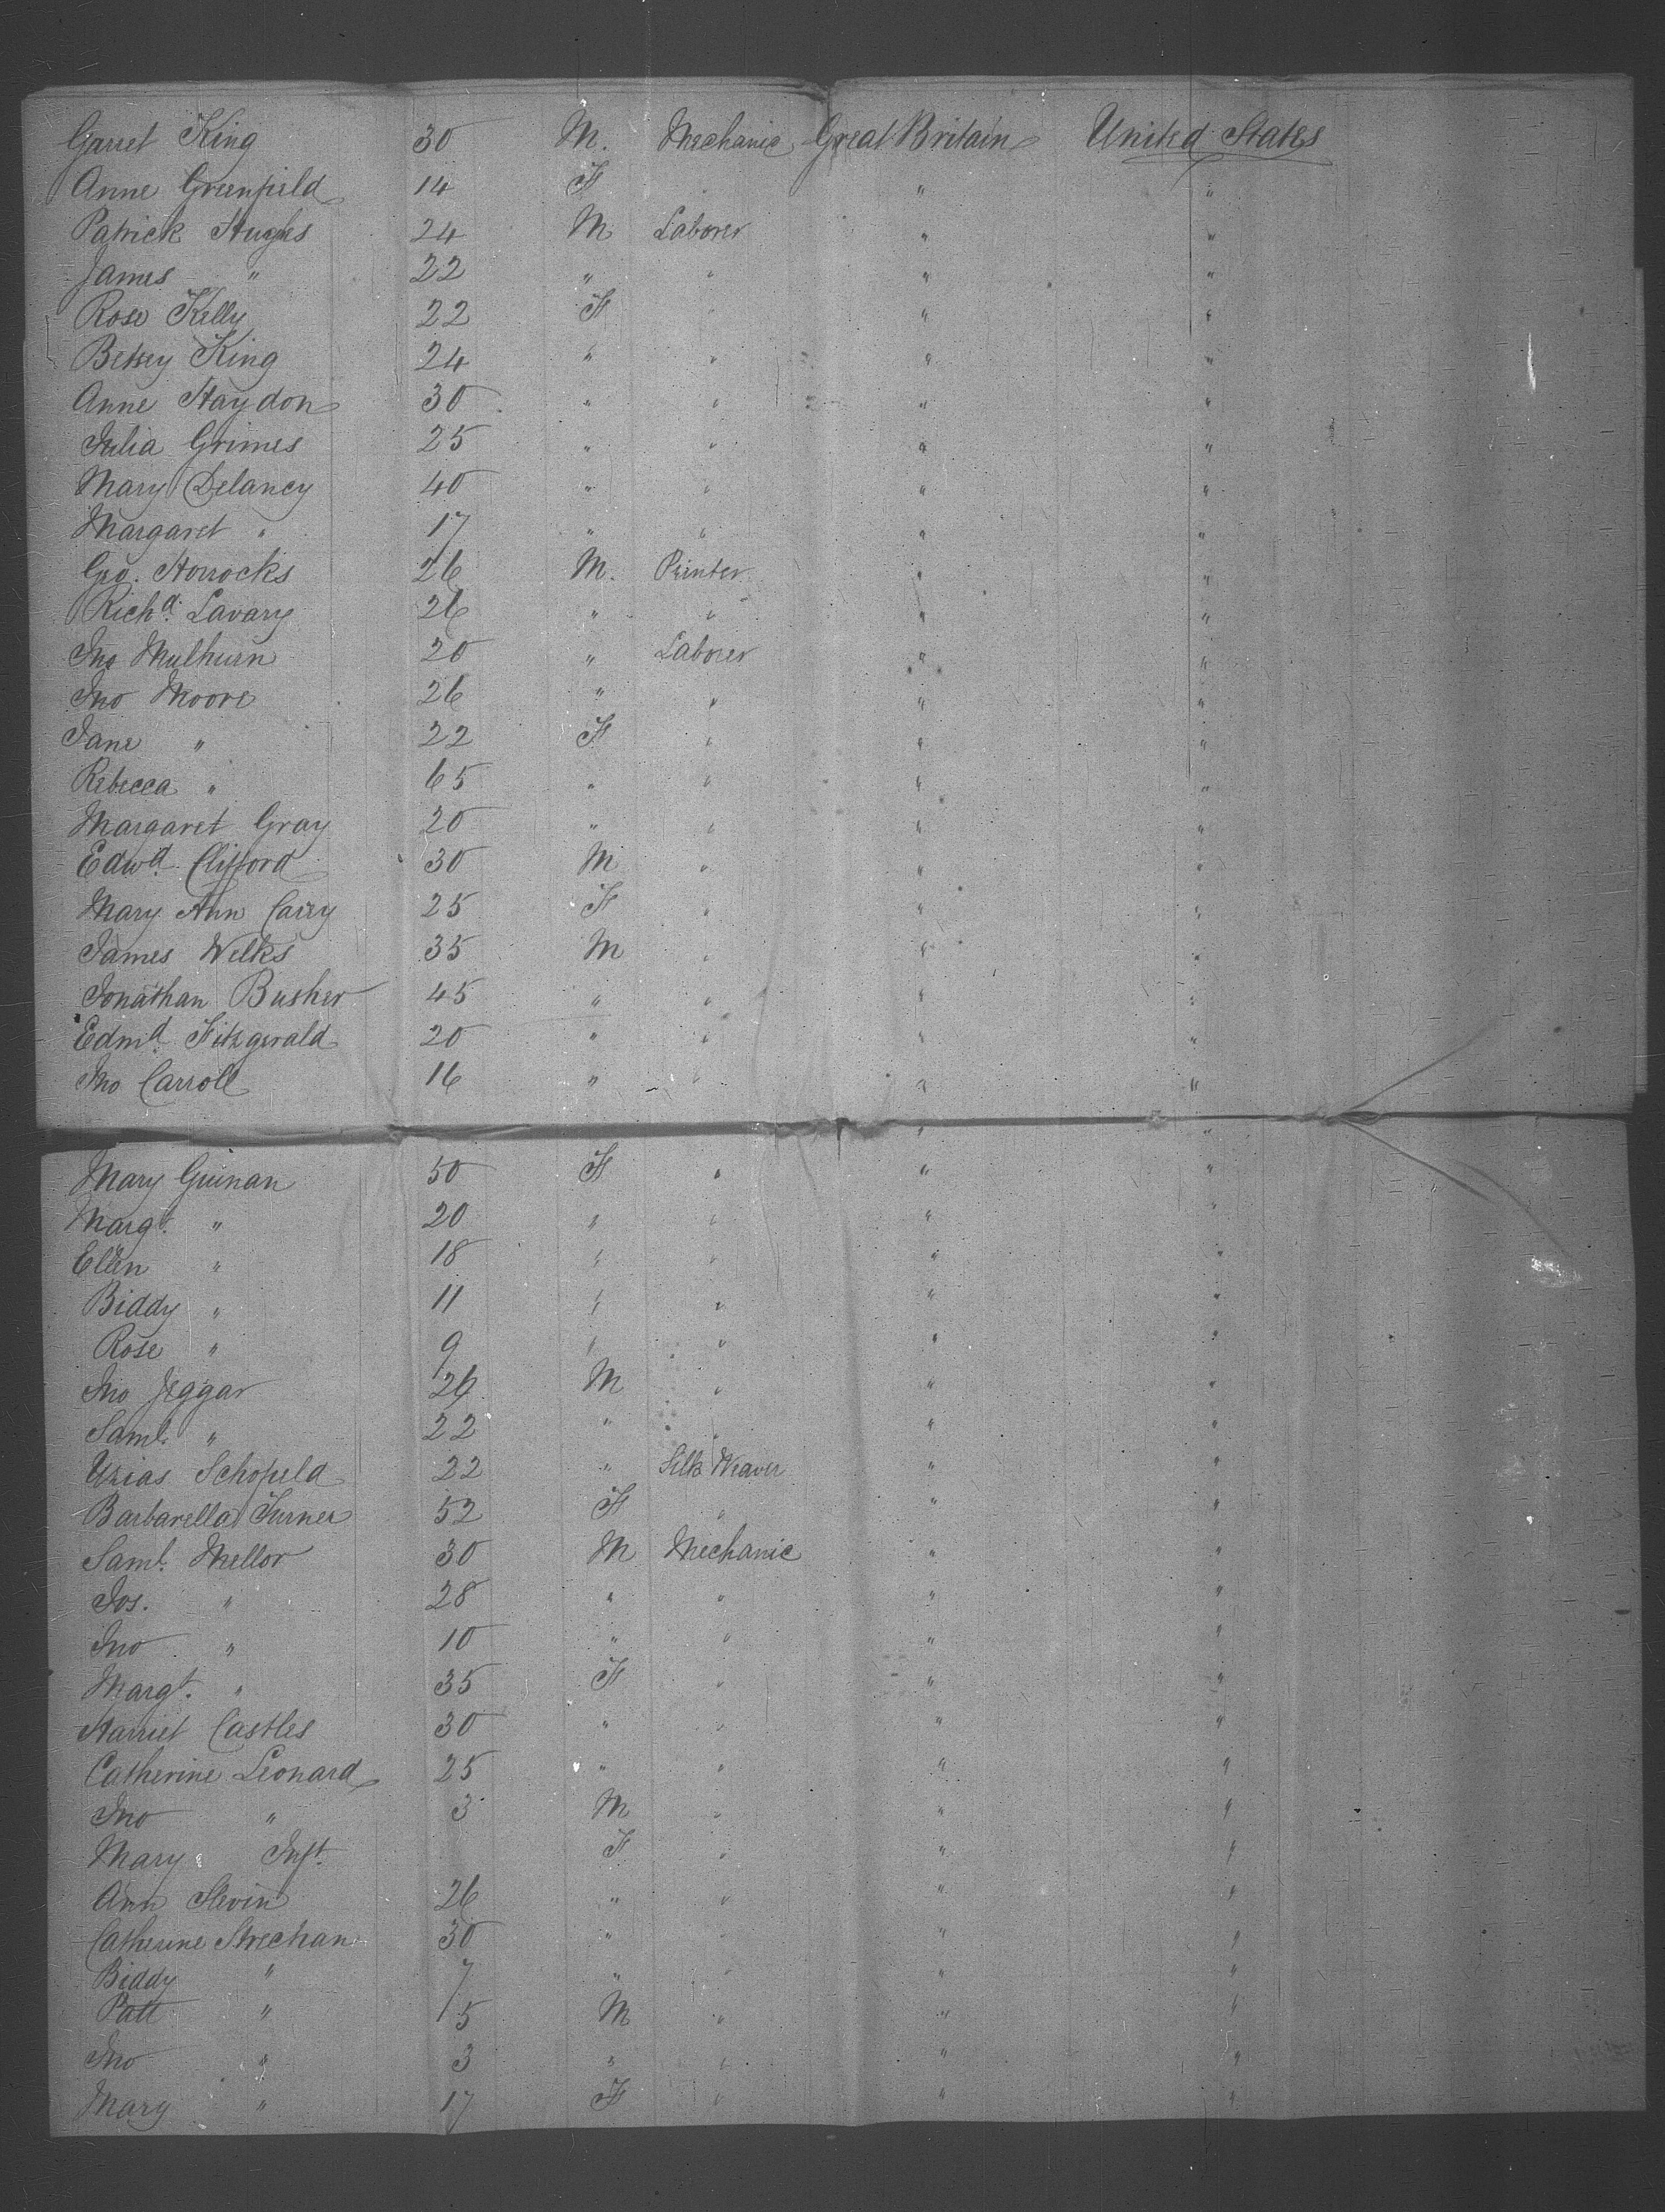 Garret King 30 M. Mechanic Great Britain United States
Anne Greenfield 14 F " " "
Patrick Hughes 24 M Laborer " "
James " 22 " " " "
Rose Kelly 22 F " " "
Betsey King 24 " " " "
Anne Haydon 30 " " " "
Julia Grimes 25 " " " "
Mary Delancy 40 " " " "
Margaret " 17 " " " "
Geo. Horrocks 26 M. Printer " "
Richd. Lavary 26 " " " "
Jno Mulhurn 20 " Laborer " "
Jno Moore 26 " " " "
Jane " 22 F " " "
Rebecca " 65 " " " "
Margaret Gray 20 " " " "
Edwd. Clifford 30 M " " "
Mary Ann Carry 25 F " " "
James Welks 35 M " " "
Jonathan Busher 45 " " " "
Edmd. Fitzgerald 20 " " " "
Jno Carroll 16 " " " "
" "
Mary Guinan 50 F " " "
Margt. " 20 " " " "
Ellen " 18 " " " "
Biddy " 11 " " " "
Rose " 9 " " " "
Jno Jeggar 26 M " " "
Saml. " 22 " " " "
Urias Schofield 22 " Silk Weaver " "
Barbarella Turner 52 F " " "
Saml. Mellor 30 M Mechanic " "
Jos. " 28 " " " "
Jno " 10 " " " "
Margt. " 35 F " " "
Harriet Castles 30 " " " "
Catherine Leonard 25 " " " "
Jno " 3 M " " "
Mary Inft. F " " "
Ann Slevin 26 " " " "
Catherine Strechan 30 " " " "
Biddy " 7 " " " "
Patt " 5 M " " "
Jno " 3 " " " "
Mary " 17 F " " "